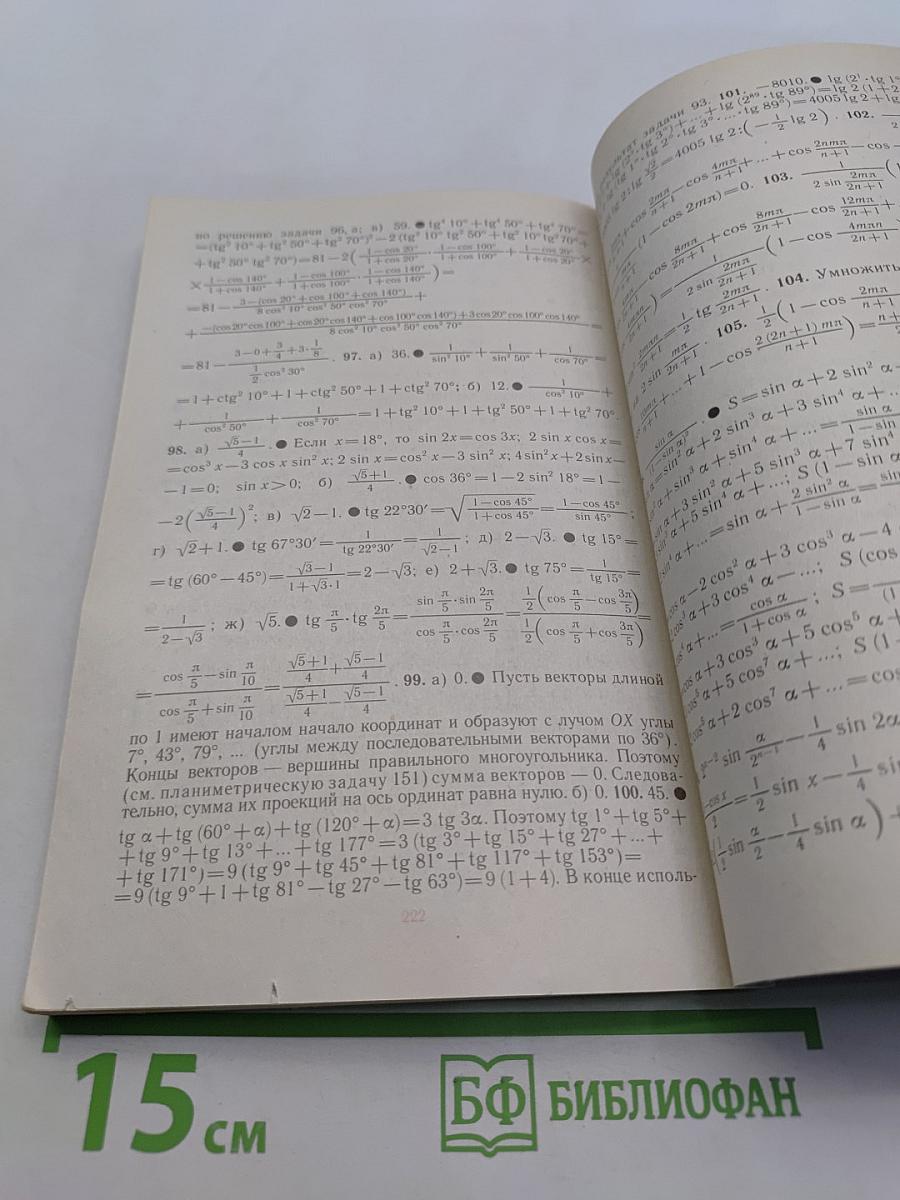 по решению задачи 96, а; в) 59. ● tg⁴ 10° + tg⁴ 50° + tg⁴ 70° =
= (tg² 10° + tg² 50° + tg² 70°)² − 2 (tg² 10° tg² 50° + tg² 10° tg² 70° +
+ tg² 50° tg² 70°) = 81 − 2 ((1 − cos 20°)/(1 + cos 20°) · (1 − cos 100°)/(1 + cos 100°) + (1 − cos 20°)/(1 + cos 20°) ×
× (1 − cos 140°)/(1 + cos 140°) + (1 − cos 100°)/(1 + cos 100°) · (1 − cos 140°)/(1 + cos 140°)) =
= 81 − (3 − (cos 20° + cos 100° + cos 140°))/(8 cos² 10° cos² 50° cos² 70°) +
+ (−(cos 20° cos 100° + cos 20° cos 140° + cos 100° cos 140°) + 3 cos 20° cos 100° cos 140°)/(8 cos² 10° cos² 50° cos² 70°) =
= 81 − (3 − 0 + 3/4 + 3 · 1/8)/(1/2 cos² 30°) . 97. а) 36. ● 1/(sin² 10°) + 1/(sin² 50°) + 1/(cos 70°) =
= 1 + ctg² 10° + 1 + ctg² 50° + 1 + ctg² 70°; б) 12. ● 1/(cos² 10°) +
+ 1/(cos² 50°) + 1/(cos² 70°) = 1 + tg² 10° + 1 + tg² 50° + 1 + tg² 70°.
98. а) (√5 − 1)/4 . ● Если x = 18°, то sin 2x = cos 3x; 2 sin x cos x =
= cos³ x − 3 cos x sin² x; 2 sin x = cos² x − 3 sin² x; 4 sin² x + 2 sin x −
− 1 = 0; sin x > 0; б) (√5 + 1)/4 . ● cos 36° = 1 − 2 sin² 18° = 1 −
− 2 ((√5 − 1)/4)²; в) √2 − 1. ● tg 22°30′ = √((1 − cos 45°)/(1 + cos 45°)) = (1 − cos 45°)/(sin 45°) ;
г) √2 + 1. ● tg 67°30′ = 1/(tg 22°30′) = 1/(√2 − 1) ; д) 2 − √3. ● tg 15° =
= tg (60° − 45°) = (√3 − 1)/(1 + √3·1) = 2 − √3; е) 2 + √3. ● tg 75° = 1/(tg 15°) =
= 1/(2 − √3) ; ж) √5. ● tg π/5 · tg 2π/5 = (sin π/5 · sin 2π/5)/(cos π/5 · cos 2π/5) = (1/2 (cos π/5 − cos 3π/5))/(1/2 (cos π/5 + cos 3π/5)) =
= (cos π/5 − sin π/10)/(cos π/5 + sin π/10) = ((√5 + 1)/4 + (√5 − 1)/4)/((√5 + 1)/4 − (√5 − 1)/4) . 99. а) 0. ● Пусть векторы длиной
по 1 имеют началом начало координат и образуют с лучом OX углы
7°, 43°, 79°, ... (углы между последовательными векторами по 36°).
Концы векторов — вершины правильного многоугольника. Поэтому
(см. планиметрическую задачу 151) сумма векторов — 0. Следова-
тельно, сумма их проекций на ось ординат равна нулю. б) 0. 100. 45. ●
tg α + tg (60° + α) + tg (120° + α) = 3 tg 3α. Поэтому tg 1° + tg 5° +
+ tg 9° + tg 13° + ... + tg 177° = 3 (tg 3° + tg 15° + tg 27° + ... +
+ tg 171°) = 9 (tg 9° + tg 45° + tg 81° + tg 117° + tg 153°) =
= 9 (tg 9° + 1 + tg 81° − tg 27° − tg 63°) = 9 (1 + 4). В конце исполь-
222
задачи 93. 101. −8010. ● lg (2¹ · tg 1°
+ ... + lg (2⁸⁹ · tg 89°) = lg 2 (1 + 2
tg 1° · tg 2° · tg 3° · ... · tg 89°) = 4005 lg 2 + lg
= 4005 lg 2 : (− 1/2 lg 2) . 102.
cos 2mπ/(n + 1) − cos 4mπ/(n + 1) + ... + cos 2nmπ/(n + 1) − cos
(1 − cos 2mπ) = 0. 103. 1/(2 sin 2mπ/(2n + 1)) (1
cos 8mπ/(2n + 1) + cos 8mπ/(2n + 1) − cos 12mπ/(2n + 1) +
1/(2 sin 2mπ/(2n + 1)) (1 − cos 4mπn/(2n + 1))
= 1/2 tg 2mπ/(2n + 1) . 104. Умножить
2 sin mπ/(2n + 1) . 105. 1/2 (1 − cos 2mπ/(n + 1)
+ ... + 1 − cos 2 (2n + 1) mπ/(n + 1)) =
● S = sin α + 2 sin² α
= sin² α + 2 sin³ α + 3 sin⁴ α + ...
+ sin³ α + sin⁴ α + ... = sin α/(1 − sin
sin α + 3 sin² α + 5 sin³ α + 7 sin⁴
sin³ α + 5 sin⁴ α + ...; S (1 − sin α
sin⁴ α + ... = sin α + 2 sin² α/(1 − sin α) =
cos α − 2 cos² α + 3 cos³ α − 4
cos³ α + 3 cos⁴ α − ...; S (cos
cos⁴ α + ... = cos α/(1 + cos α) ; S =
cos α + 3 cos³ α + 5 cos⁵ α +
cos⁵ α + 5 cos⁷ α + ...; S (1 −
cos⁵ α + 2 cos⁷ α + ... = cos
sin α/2ⁿ⁻² − 1/4 sin 2α
= 1/2 sin x − 1/4 sin
sin α/2 − 1/4 sin α) +
15 см
БФ БИБЛИОФАН